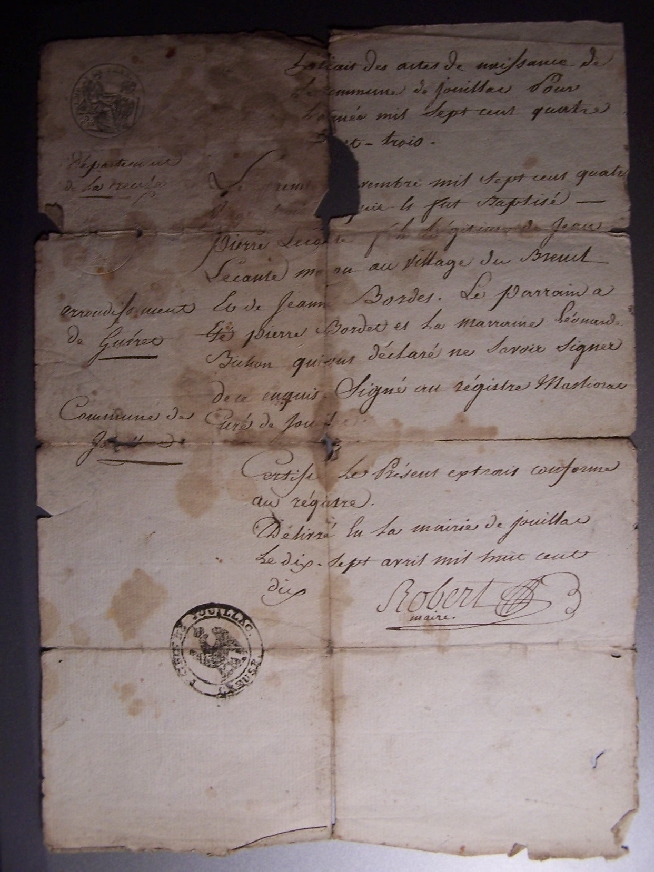 Extrait des actes de naissance de
la commune de Jouillac Pour
l'année mil sept cent quatre
vingt-trois.
Département
de La Creuse
Le mil sept cent quatre
fut Baptisé
pierre Lecante fils légitime de Jean
Lecante au village du Breuil
arrondissement
de Guéret
Et de Jeanne Bordes. Le parrain a
été pierre Bordes et la marraine Léonarde
qui ont déclaré ne Savoir Signer
de ce enquis Signé au régistre
Commune de
Jouillac
Curé de Jouillac
Certifié Le Présent extrait conforme
au régistre.
Délivré En La mairie de jouillac
Le dix-sept avril mil huit cent
dix
Robert
maire.
JOUILLAC
CREUSE